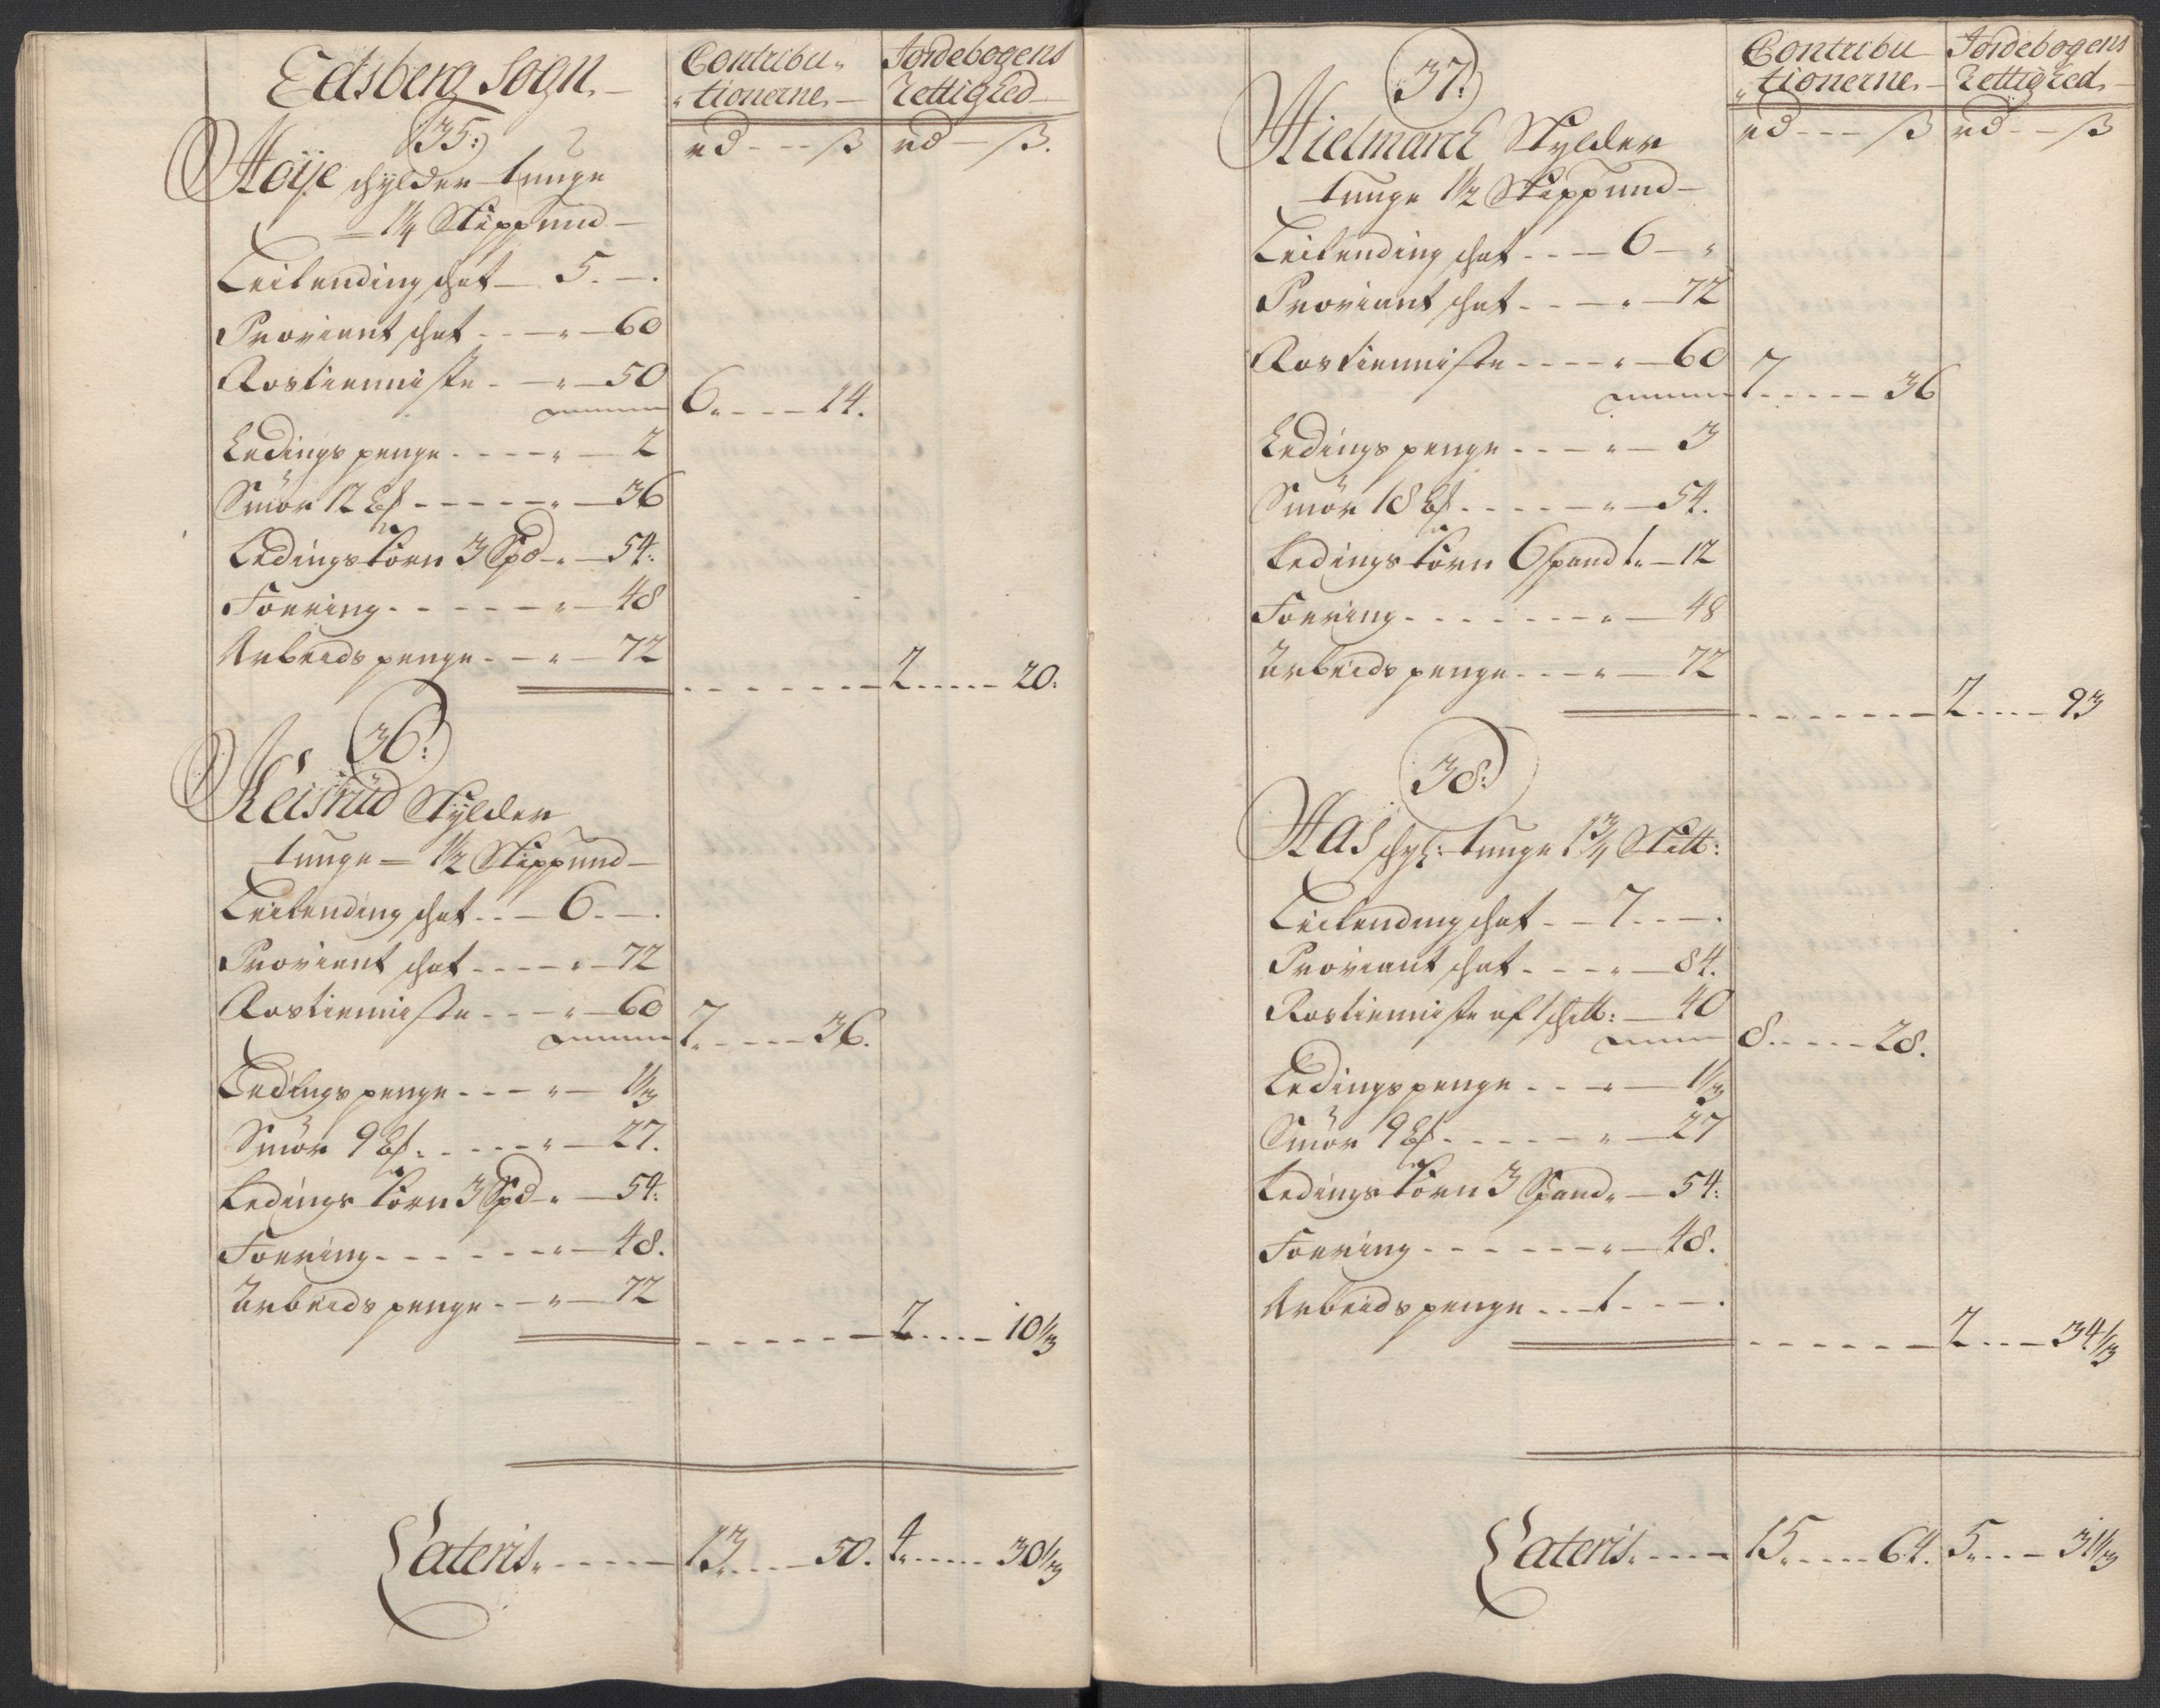 Edsberg Sogn.
Contribu-
tionerne.
Jordebogens
Rettighed
rd --- ß
rd - ß.
35:
Høÿe schylder tunge
1¼ Skippund
Leilending schat 5. -.
Proviant schat - - „ 60
Rostienniste - „ 50
6. - - - 14.
Ledings penge - - - „ 2
Smör 12 - - - - „ 36
Ledings korn 3 Spd „ 54:
Foering - - - - - „ 48
Arbeids penge - - „ 72
2 - - - 20.
36:
Reisrüd Skylder
tunge 1½ Skippund
Leilending schat - - 6. -.
Proviant schat - - - „ 72
Rostienniste - - „ 60
7. - - - 36.
Ledings penge - - - „ 1⅓
Smör 9 - - - - „ 27.
Ledings korn 3 Spd „ 54:
Foering - - - - - „ 48.
Arbeids penge - - „ 72
2 - - - 10⅓
Lateris. - - - - 13. - - - 50. 4. - - - 30⅓
Contribu
tionerne.
Jordebogens
Rettighed.
rd --- ß
rd -- ß
37:
Hielmarck Skylder
tunge 1½ Skippund
Leilending schat - - - 6 - „
Proviant schat - - - „ 72
Rostienniste - - - - „ 60
7. - - - - 36
Ledings penge - - - „ 3
Smör 18 - - - - - „ 54.
Ledings korn 6 spand 1. 12
Foering - - - - - - - „ 48
Arbeids penge - - - „ 72
2 - - - 93
38:
Aas schyl: tunge 1¾ Skilb:
Leilending schat - - 7 - - -.
Proviant schat - - - „ 84.
Rostienniste af 1 schilb: 40
8. - - - 28.
Ledings penge - - - „ 1⅓
Smör 9 - - - - - „ 27
Ledings korn 3 Spand „ 54:
Foering - - - - - - „ 48.
Arbeids penge - - - 1. - - -.
2 - - - 34⅓
Lateris. - - - 15. - - - 64. 5. - - - 31⅓